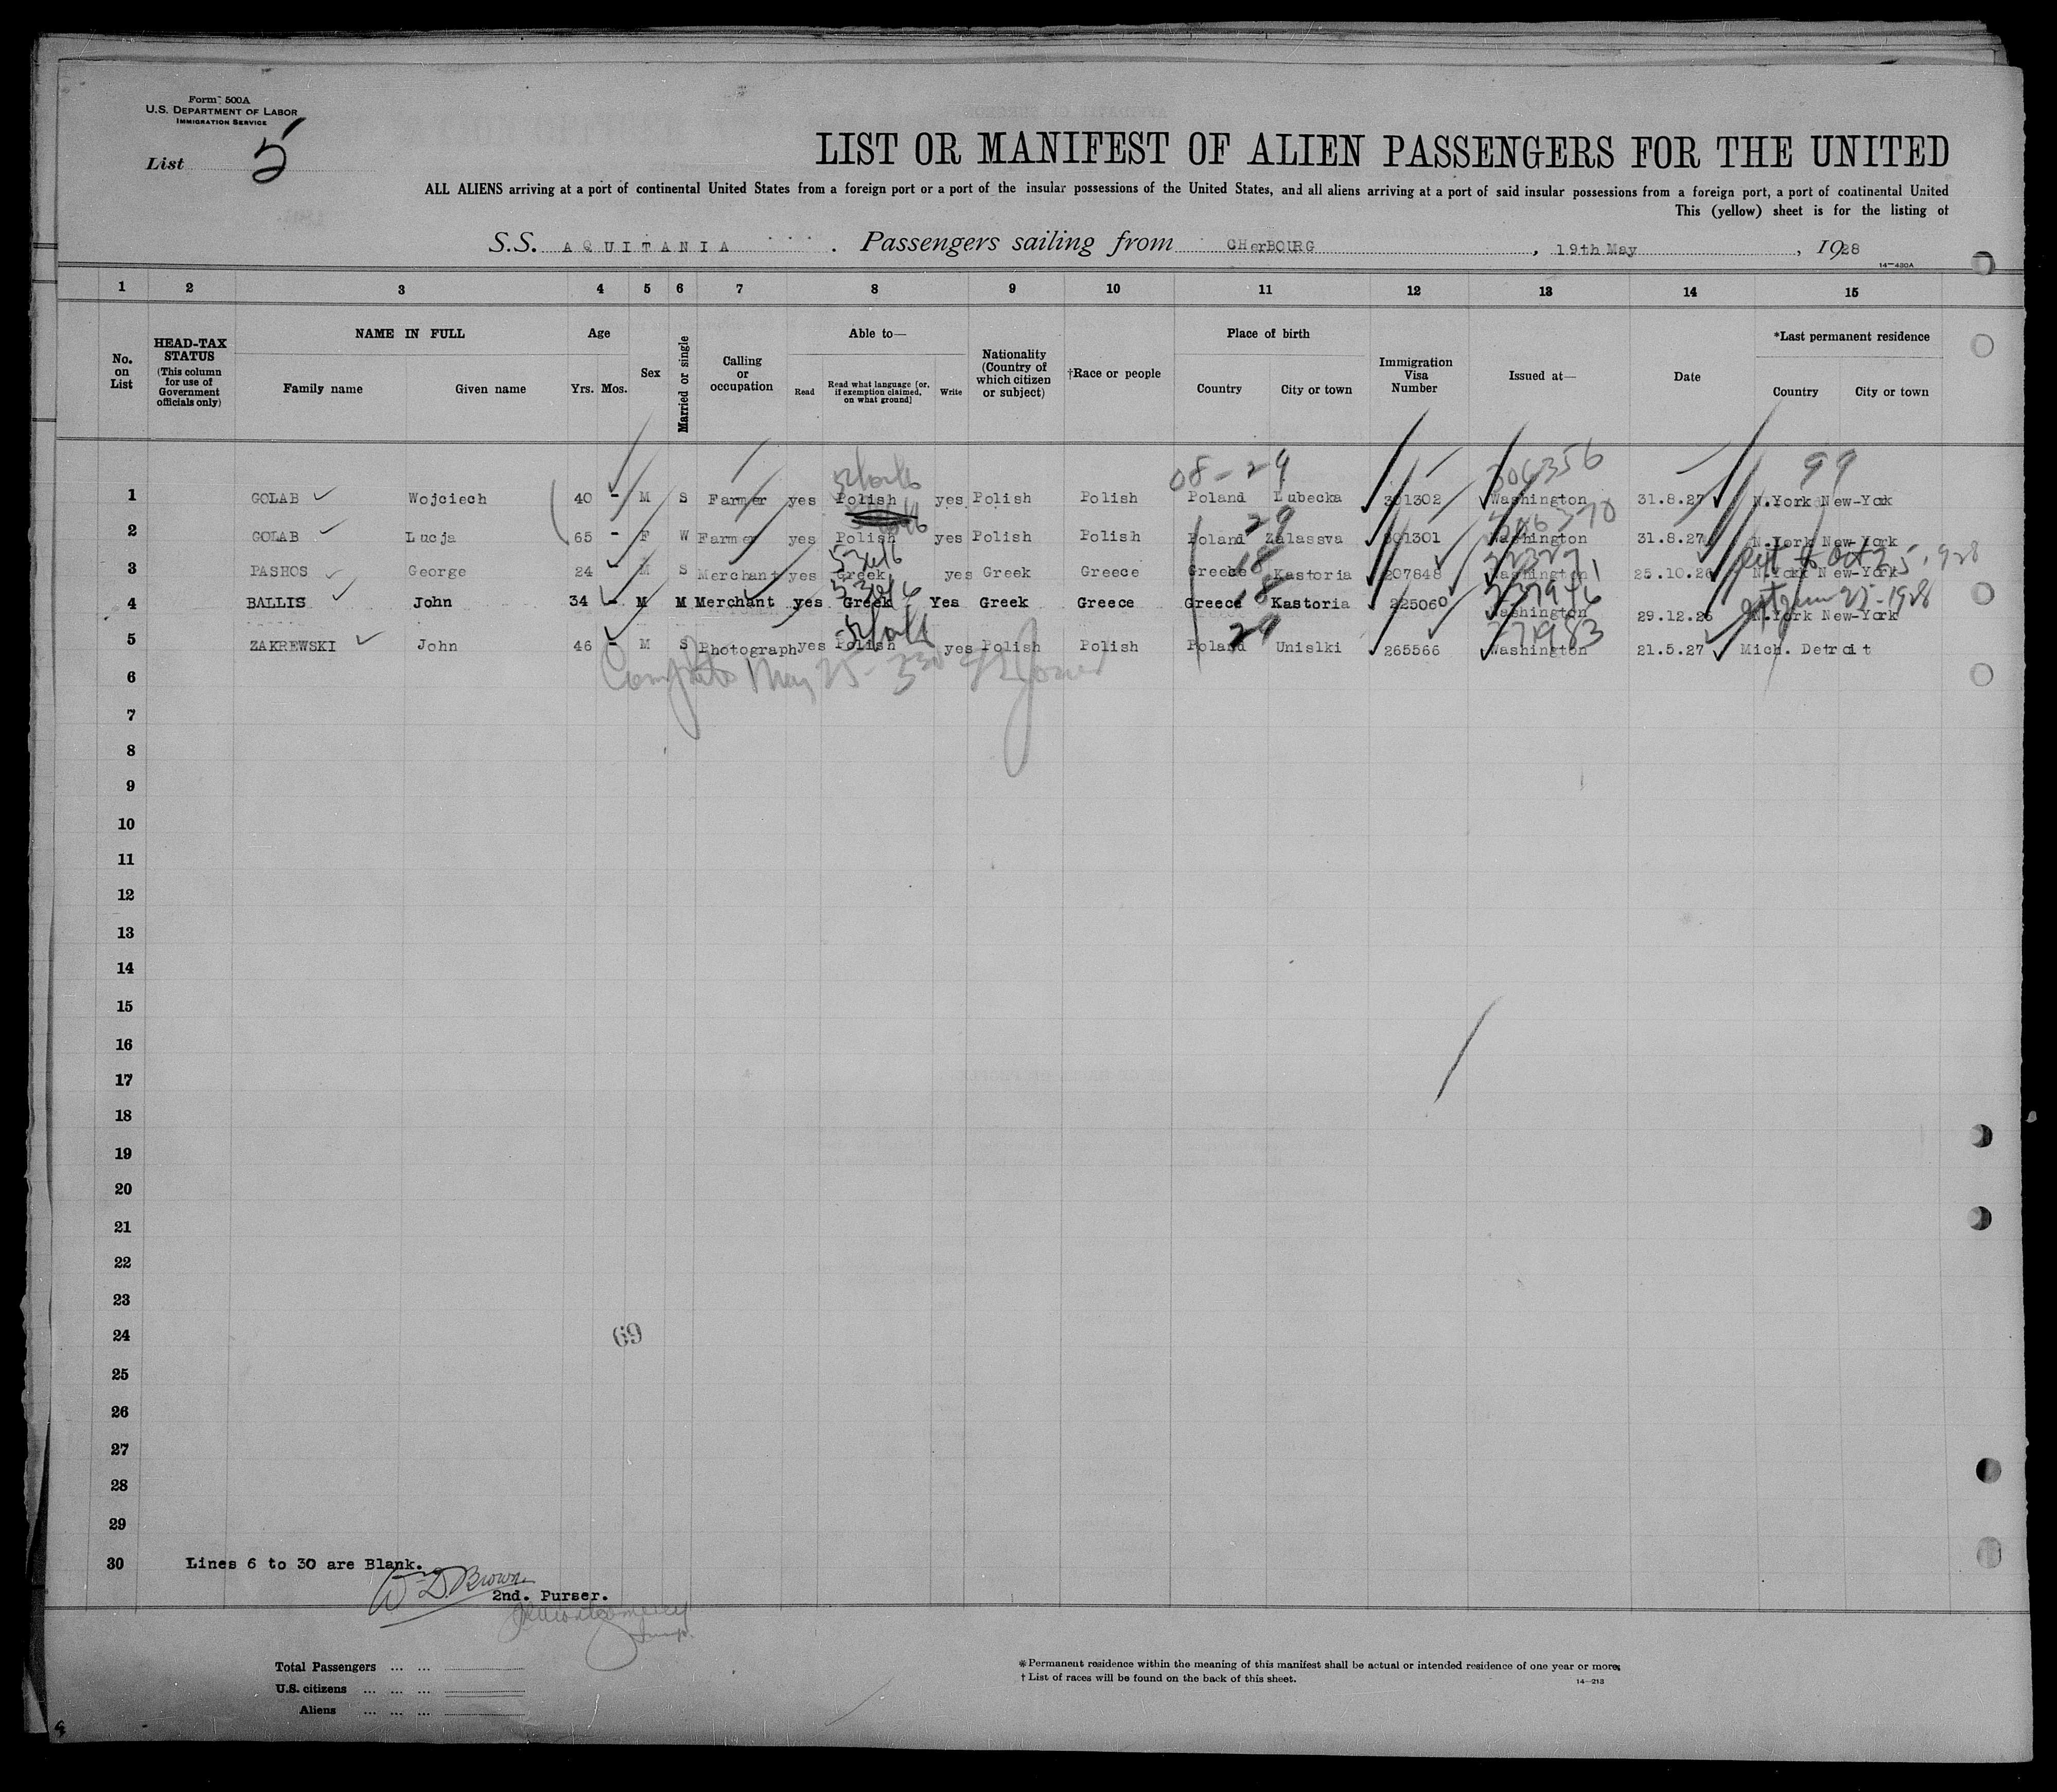 Form 500A
U.S. DEPARTMENT OF LABOR
IMMIGRATION SERVICE
List 5
LIST OR MANIFEST OF ALIEN PASSENGERS FOR THE UNITED
ALL ALIENS arriving at a port of continental United States from a foreign port or a port of the insular possessions of the United States, and all aliens arriving at a port of said insular possessions from a foreign port, a port of continental United
This (yellow) sheet is for the listing of
S.S. AQUITANIA . Passengers sailing from CHerBOURG , 19th May , 1928
14—430A
1 2 3 4 5 6 7 8 9 10 11 12 13 14 15
No. on List
HEAD-TAX STATUS (This column for use of Government officials only)
NAME IN FULL
Family name Given name
Age
Yrs. Mos.
Sex
Married or single
Calling or occupation
Able to—
Read Read what language [or, if exemption claimed, on what ground] Write
Nationality (Country of which citizen or subject)
†Race or people
Place of birth
Country City or town
Immigration Visa Number
Issued at—
Date
*Last permanent residence
Country City or town
08-29 306356 99
1 GOLAB Wojciech 40 - M S Farmer yes Polish yes Polish Polish Poland Lubecka 301302 Washington 31.8.27 N.York New-York
29 306370
2 GOLAB Lucja 65 - F W Farmer yes Polish yes Polish Polish Poland Zalassva 301301 Washington 31.8.27 N.York New-York
18
3 PASHOS George 24 M S Merchant yes Greek yes Greek Greece Greece Kastoria 207848 Washington 25.10.26 N.York New-York
18 237946
4 BALLIS John 34 - M M Merchant yes Greek Yes Greek Greece Greece Kastoria 225060 Washington 29.12.26 N.York New-York
29 271983
5 ZAKREWSKI John 46 - M S Photograph yes Polish yes Polish Polish Poland Unislki 265566 Washington 21.5.27 Mich. Detroit
May 25
6
7
8
9
10
11
12
13
14
15
16
17
18
19
20
21
22
23
24 69
25
26
27
28
29
30 Lines 6 to 30 are Blank.
W D. Brown
2nd. Purser.
Total Passengers ... ...
U.S. citizens ... ... ...
Aliens ... ... ...
*Permanent residence within the meaning of this manifest shall be actual or intended residence of one year or more.
† List of races will be found on the back of this sheet.
14—213